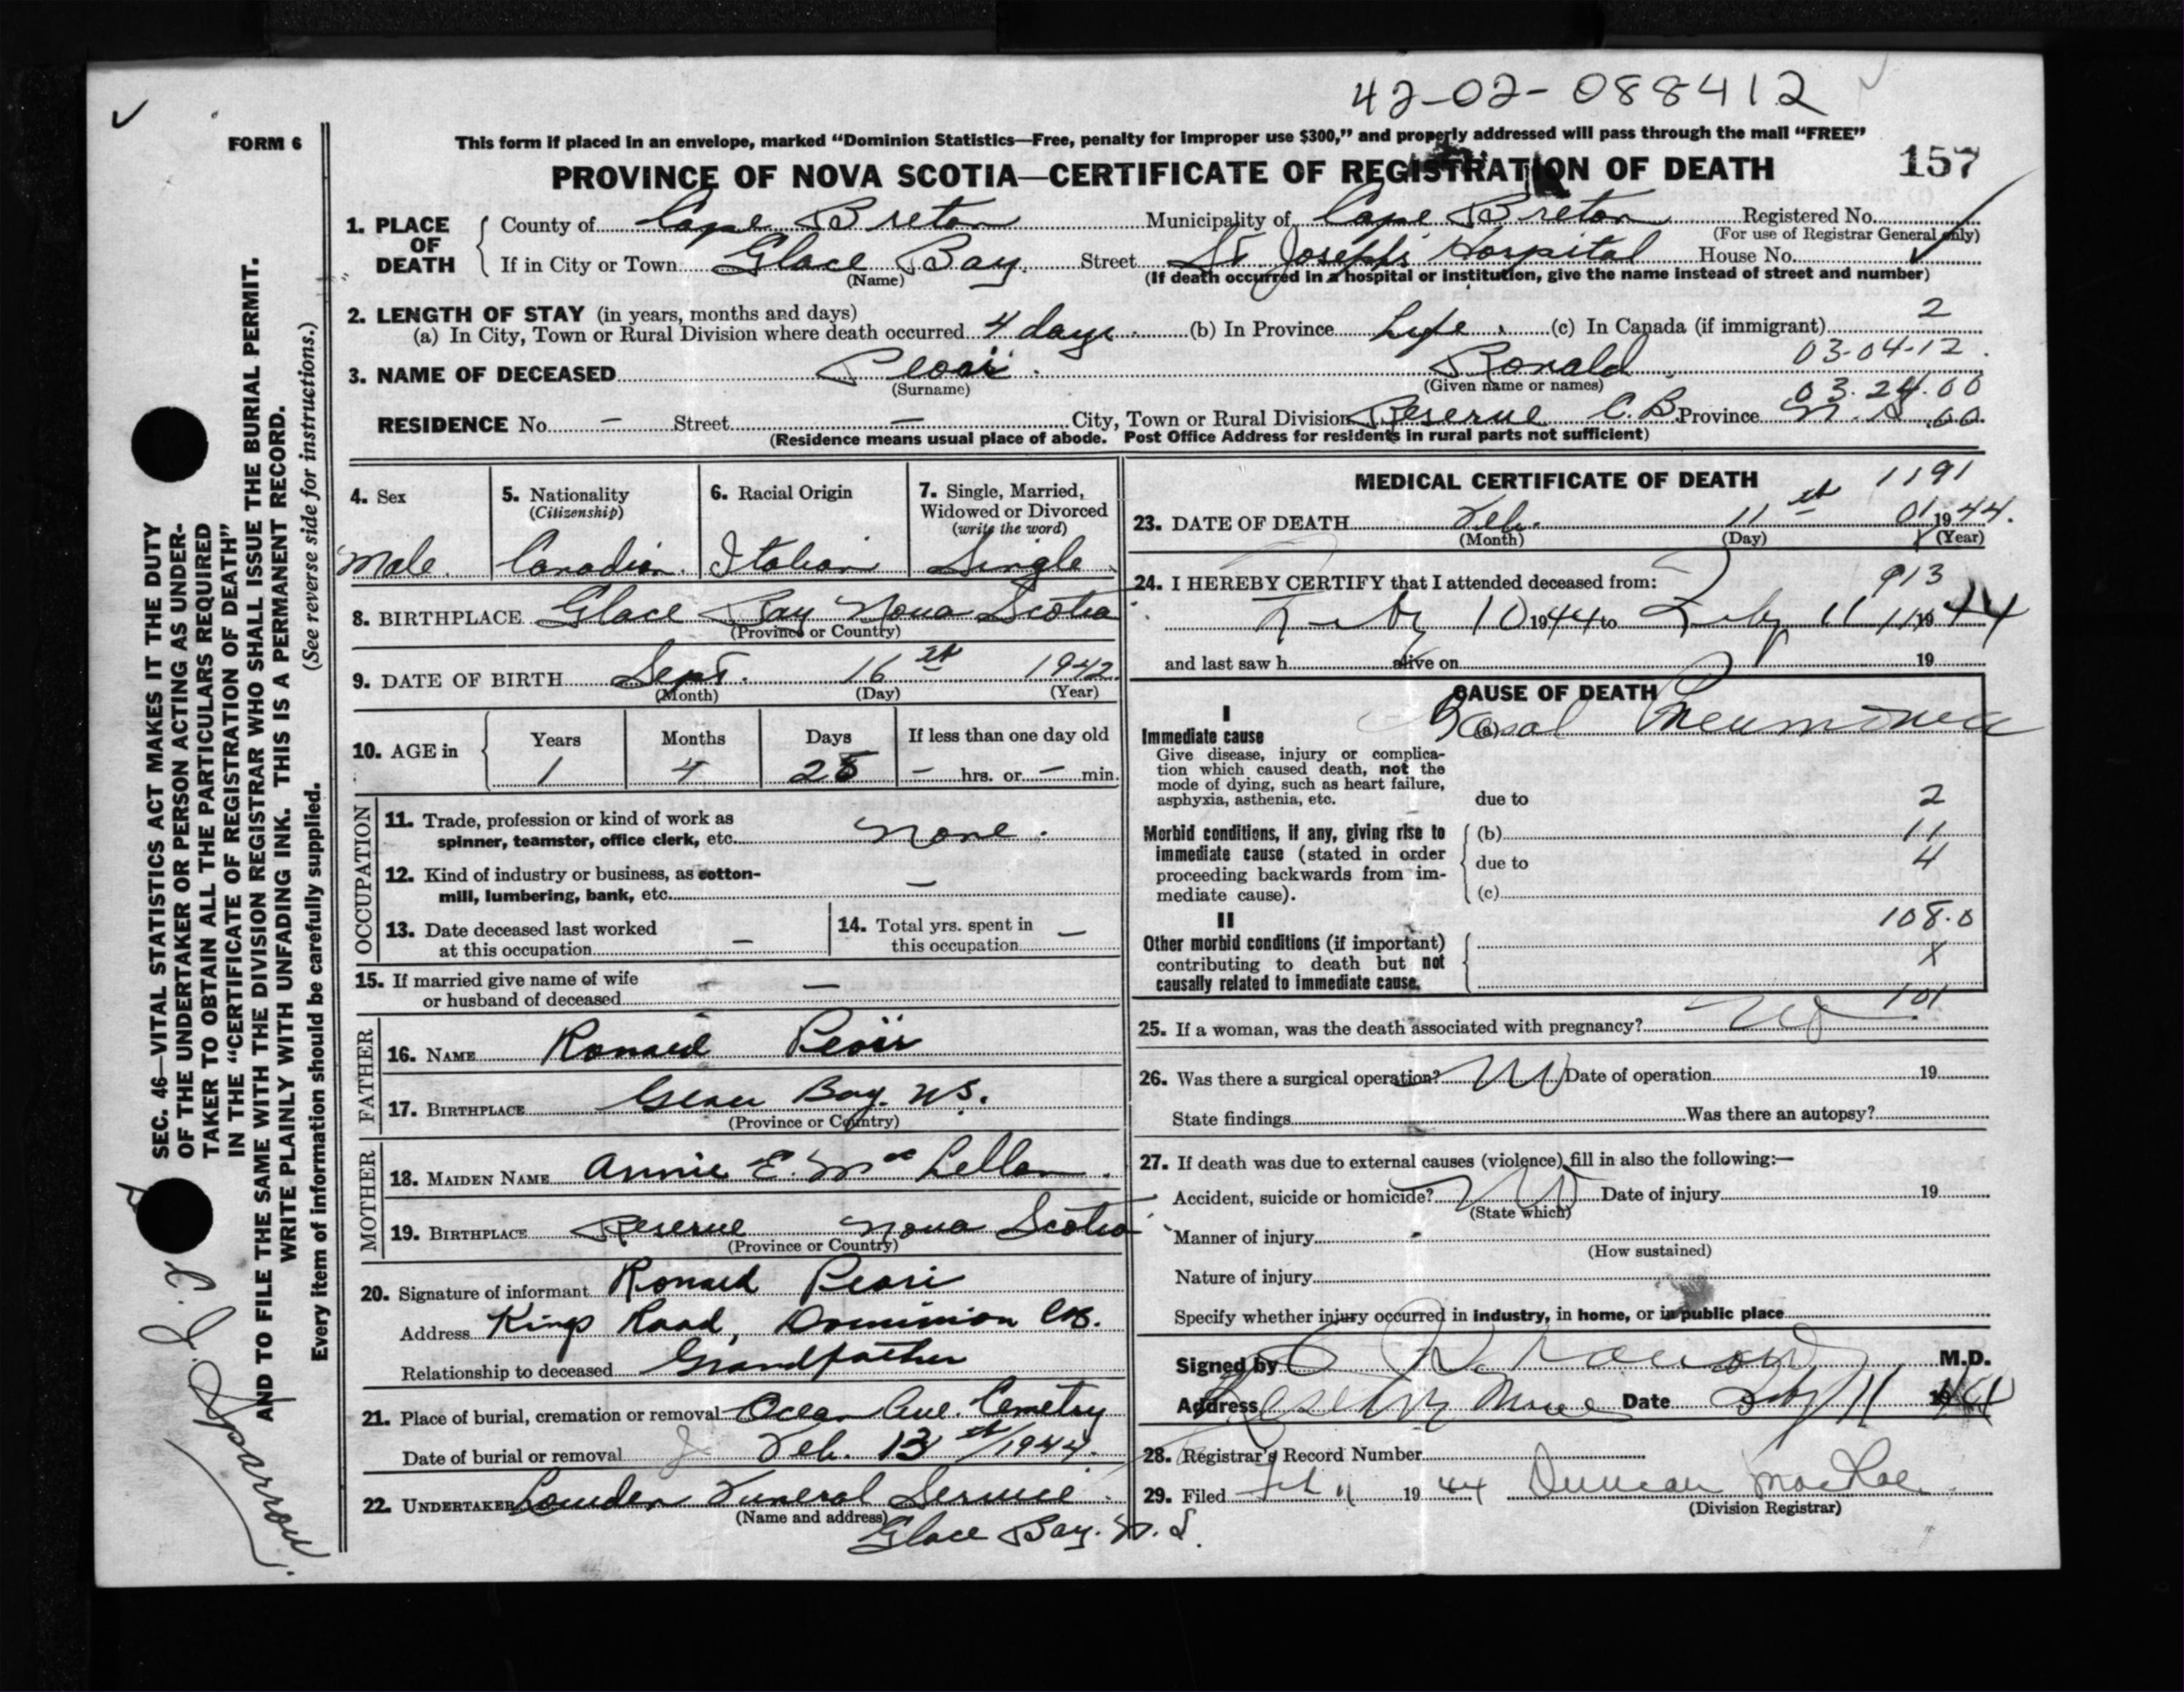 42-02-088412
FORM 6
This form if placed in an envelope, marked "Dominion Statistics—Free, penalty for improper use $300," and properly addressed will pass through the mail "FREE"
PROVINCE OF NOVA SCOTIA—CERTIFICATE OF REGISTRATION OF DEATH 157
1. PLACE OF DEATH
County of Cape Breton Municipality of Cape Breton Registered No.
(For use of Registrar General only)
If in City or Town Glace Bay Street St Joseph's Hospital House No.
(Name) (If death occurred in a hospital or institution, give the name instead of street and number)
2. LENGTH OF STAY (in years, months and days) 2
(a) In City, Town or Rural Division where death occurred 4 days (b) In Province Life (c) In Canada (if immigrant)
03-04-12
3. NAME OF DECEASED Ronald
(Surname) (Given name or names) 03.24.00
RESIDENCE No. – Street – City, Town or Rural Division Reserve C.B. Province N.S. 00
(Residence means usual place of abode. Post Office Address for residents in rural parts not sufficient)
4. Sex 5. Nationality 6. Racial Origin 7. Single, Married,
(Citizenship) Widowed or Divorced
(write the word)
Male. Canadian. Italian Single
8. BIRTHPLACE Glace Bay Nova Scotia
(Province or Country)
9. DATE OF BIRTH Sept. 16th 1942
(Month) (Day) (Year)
10. AGE in Years Months Days If less than one day old
1 4 – hrs. or – min.
OCCUPATION
11. Trade, profession or kind of work as
spinner, teamster, office clerk, etc. None.
12. Kind of industry or business, as cotton-
mill, lumbering, bank, etc. –
13. Date deceased last worked
at this occupation –
14. Total yrs. spent in
this occupation –
15. If married give name of wife
or husband of deceased –
FATHER
16. NAME Ronald
17. BIRTHPLACE Glace Bay. N.S.
(Province or Country)
MOTHER
18. MAIDEN NAME Annie E. McLellan
19. BIRTHPLACE Reserve Nova Scotia
(Province or Country)
20. Signature of informant Ronald
Address Kings Road, Dominion C.B.
Relationship to deceased Grandfather
21. Place of burial, cremation or removal Ocean Ave. Cemetery
Date of burial or removal Feb. 13th/1944.
22. UNDERTAKER Funeral Service
(Name and address)
Glace Bay. N.S.
MEDICAL CERTIFICATE OF DEATH 1191
23. DATE OF DEATH Feb. 11th 01 1944.
(Month) (Day) (Year)
24. I HEREBY CERTIFY that I attended deceased from: 913
Feby 10 1944 to Feby 11 1944
and last saw h alive on 19
CAUSE OF DEATH
I
Immediate cause
(a) Basal Pneumonia
Give disease, injury or complica-
tion which caused death, not the
mode of dying, such as heart failure,
asphyxia, asthenia, etc.
due to 2
Morbid conditions, if any, giving rise to
immediate cause (stated in order
proceeding backwards from im-
mediate cause).
(b) 11
due to 4
(c)
108.0
II
Other morbid conditions (if important)
contributing to death but not
causally related to immediate cause.
X
101
25. If a woman, was the death associated with pregnancy? No
26. Was there a surgical operation? No Date of operation 19
State findings Was there an autopsy?
27. If death was due to external causes (violence) fill in also the following:—
Accident, suicide or homicide? No Date of injury 19
(State which)
Manner of injury
(How sustained)
Nature of injury
Specify whether injury occurred in industry, in home, or in public place
Signed by M.D.
Address Date Feby 11 1944
28. Registrar's Record Number
29. Filed Feb 11 1944 Duncan MacRae
(Division Registrar)
SEC. 46—VITAL STATISTICS ACT MAKES IT THE DUTY
OF THE UNDERTAKER OR PERSON ACTING AS UNDER-
TAKER TO OBTAIN ALL THE PARTICULARS REQUIRED
IN THE "CERTIFICATE OF REGISTRATION OF DEATH"
AND TO FILE THE SAME WITH THE DIVISION REGISTRAR WHO SHALL ISSUE THE BURIAL PERMIT.
WRITE PLAINLY WITH UNFADING INK. THIS IS A PERMANENT RECORD.
Every item of information should be carefully supplied. (See reverse side for instructions.)
Sparrow